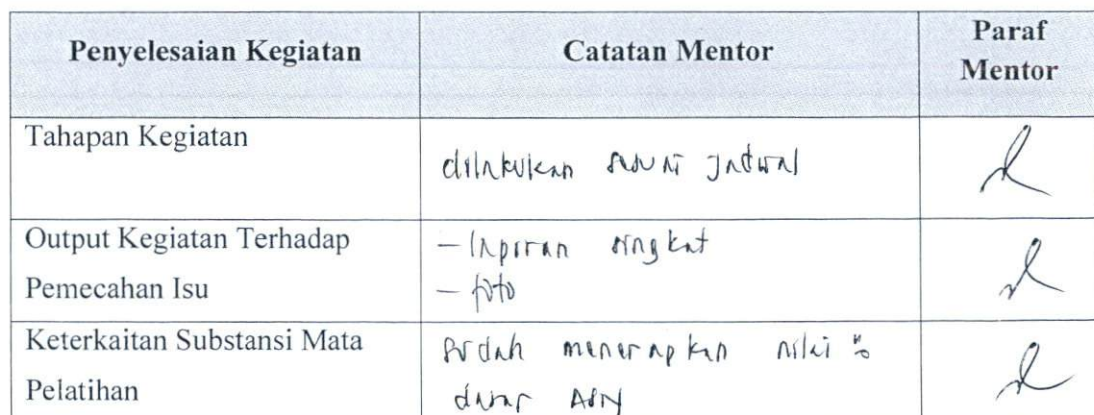 Penyelesaian Kegiatan
Catatan Mentor
Paraf
Mentor
Tahapan Kegiatan
dilakukan sesuai jadwal
Output Kegiatan Terhadap
Pemecahan Isu
- laporan singkat
- foto
Keterkaitan Substansi Mata
Pelatihan
sudah menerapkan nilai"
dasar ASN